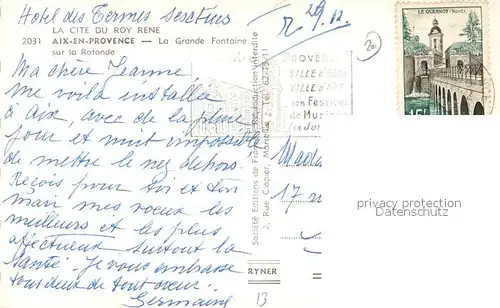 Hotel des Termes Sesctius
LA CITE DU ROY RENE
2031 AIX-EN-PROVENCE — La Grande Fontaine
sur la Rotonde
Ma chère Jeanne,
Me voilà installée
à Aix, avec de la pluie
jour et nuit impossible
de mettre le nez dehors.
Reçois pour toi et ton
mari mes voeux les
meilleurs et les plus
affectueux surtout la
santé. Je vous embrasse
tous deux de tout coeur.
Germaine
Société Editions de France
Reproduction interdite
PROVENCE
VILLE D'EAU
VILLE D'ART
son Festival
de Musique
en Jui
LE QUESNOY (Nord)
15F
17 
privacy protection
Datenschutz
RYNER
13